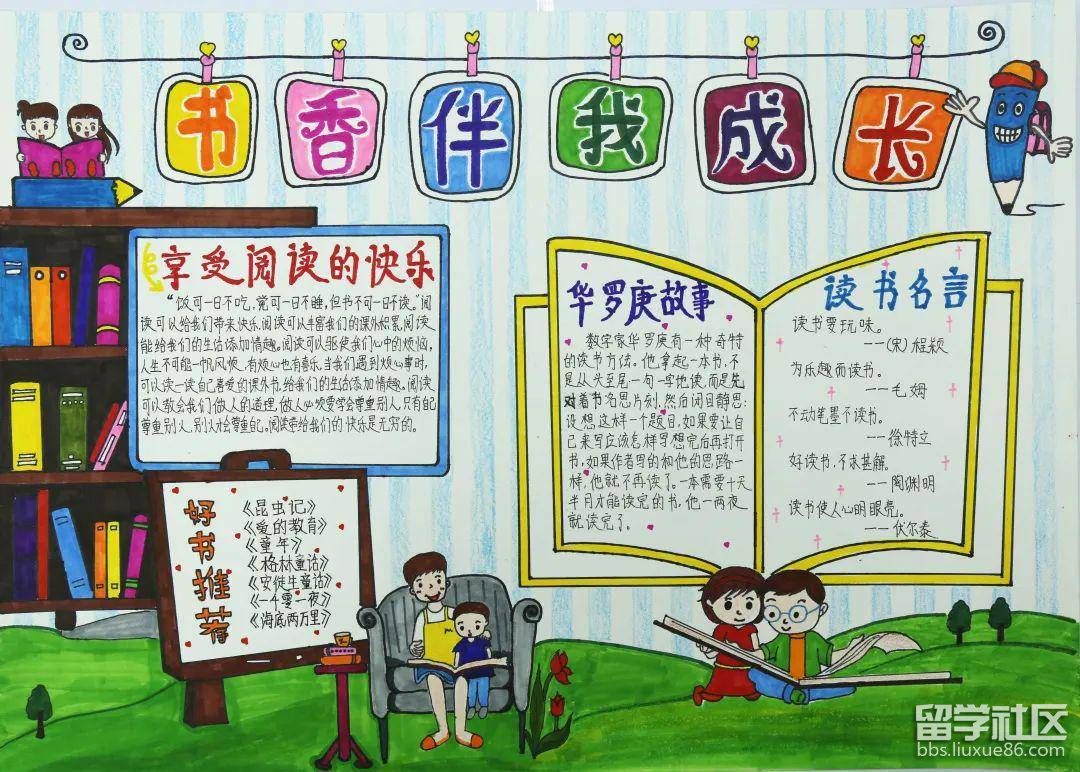 书香伴我成长
享受阅读的快乐
“饭可一日不吃,觉可一日不睡,但书不可一日不读。”阅
读可以给我们带来快乐,阅读可以丰富我们的课外积累,阅读
能给我们的生活添加情趣。阅读可以驱使我们心中的烦恼,
人生不可能一帆风顺,有烦心也有喜乐,当我们遇到烦心事时,
可以读一读自己喜爱的课外书,给我们的生活添加情趣。阅读
可以教会我们做人的道理,做人必须要学会尊重别人,只有自己
尊重别人,别人才会尊重自己。阅读带给我们的快乐是无穷的。
好书推荐
《昆虫记》
《爱的教育》
《童年》
《格林童话》
《安徒生童话》
《一千零一夜》
《海底两万里》
华罗庚故事
数学家华罗庚有一种奇特
的读书方法。他拿起一本书,不
是从头至尾一句一字地读,而是先
对着书名思片刻,然后闭目静思:
设想,这样一个题目,如果要让自
己来写应该怎样写想完后再打开
书,如果作者写的和他的思路一
样,他就不再读了。一本需要十天
半月才能读完的书,他一两夜
就读完了。
读书名言
读书要玩味。
——(宋)程颢
为乐趣而读书。
——毛姆
不动笔墨不读书。
——徐特立
好读书,不求甚解。
——陶渊明
读书使人心明眼亮。
——伏尔泰
留学社区
bbs.liuxue86.com